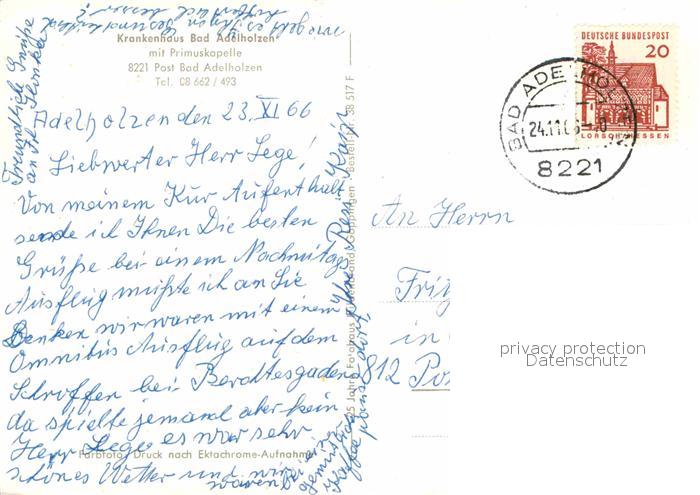 Krankenhaus Bad Adelholzen
mit Primuskapelle
8221 Post Bad Adelholzen
Tel. C8 662 / 493
Adelholzen den 23. XI 66
Liebwerter Herr Lege!
Von meinem Kur Aufenthalt
sende ich Ihnen Die besten
Grüße bei einem Nachmitags
Ausflug mußte ich am Sie
Denken wir waren mit einem
Omnitus Ausflug auf dem
Schroffen bei Berchtesgaden
da spielte jemand aber kein
Herr Lege es war sehr
schönes Wetter und wir
waren bei
gemütlich
Kaffee
Ihre Resi Kaiser
Freundliche Grüße
an Frl.
wie geht es Ihnen Gesundheitlich
hoffentlich doch besser?
Farbfoto / Druck nach Ektachrome-Aufnahme
25 Jahre Fotohaus Göppingen
Bestell 38 517 F
DEUTSCHE BUNDESPOST
20
LORSCH/HESSEN
BAD ADELHOLZEN
24.11.66
8221
An Herrn
Fritz
in
812 Po
privacy protection
Datenschutz